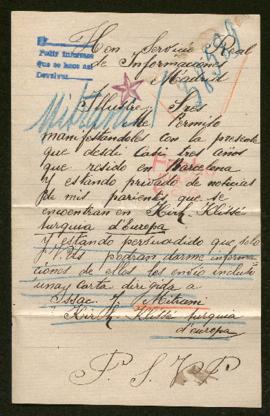 Pedir informes
que se hace asi
Devolver
Hon Servicio Real
de Informaciones
Madrid
Mitrani
Illustre Sres
Me Permito
manifestandoles con la presente
que desde Casi tres años
que resido en Barcelona
Y estando privado de noticias
de mis parients, que se
encuentran en Kirk-Klissé
turquia d'Europa
Y estando persuadido que solo
V. Us podran darme informa
ciones de ellos les envio incluti
una carta dirigida a
Issac Y Mitrani
Kirk-Klissé turquia
d'europa